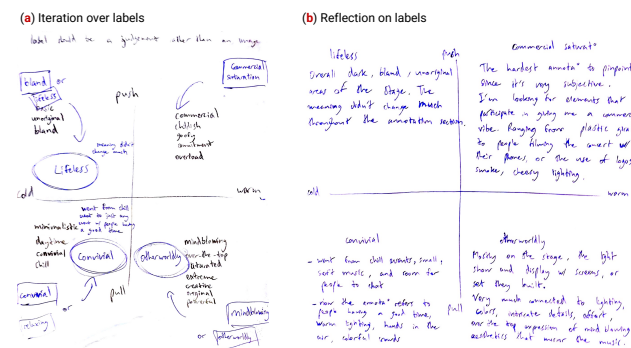 (a) Iteration over labels
label should be a judgement other than an image
bland or
lifeless
basic
unoriginal
bland
push
Commercial
saturation
commercial
childish
goofy
overload
meaning didn't
change much
Lifeless
cold
warm
went from chill
event to just any
event w/ people having
a good time
minimalistic
daytime
convivial
chill
Convivial
Otherworldly
mindblowing
over-the-top
saturated
extreme
creative
original
powerful
pull
convivial
or
relaxing
mindblowing
or otherworldly
(b) Reflection on labels
lifeless
push
Overall dark, bland, unoriginal
areas of the stage. The
meaning didn't change much
throughout the annotation section.
commercial saturat°
The hardest annotat° to pinpoint
since it's very subjective.
I'm looking for elements that
participate in giving me a commerc
vibe. Ranging from plastic
to people filming the concert w/
their phones, or the use of logos
smoke, cheesy lighting.
cold
warm
convivial
- went from chill events, small,
soft music, and room for
people to chat
- now the annotat° refers to
people having a good time,
warm lighting, hands in the
air, colorful
pull
otherworldly
Mostly on the stage, the light
show and display w/ screens, or
set they built.
Very much connected to lighting,
colors, intricate details, effort,
over the top impression of mind blowing
aesthetics that mirror the music.